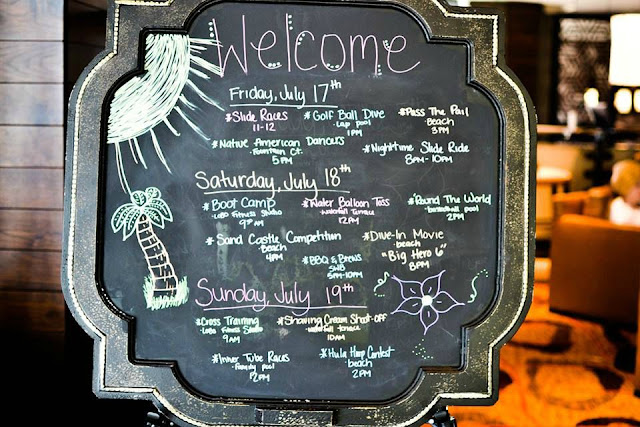 Welcome
Friday, July 17th
*Slide Races
11-12
*Golf Ball Dive
-Lap pool
1PM
*Pass The Pail
-Beach
3PM
*Native American Dancers
-Fountain Ct.
5PM
*Nighttime Slide Ride
8PM-10PM
Saturday, July 18th
*Boot Camp
-LoBo Fitness Studio
9AM
*Water Balloon Toss
-Waterfall Terrace
12PM
*Round The World
-basketball pool
2PM
*Sand Castle Competition
-beach
4PM
*BBQ & Brews
SWB
5PM-10PM
*Dive-In Movie
-beach
"Big Hero 6"
8PM
Sunday, July 19th
*Cross Training
-LoBo Fitness Studio
9AM
*Shaving Cream Shoot-off
-waterfall terrace
10AM
*Inner Tube Races
-Family pool
12PM
*Hula Hoop Contest
-beach
2PM